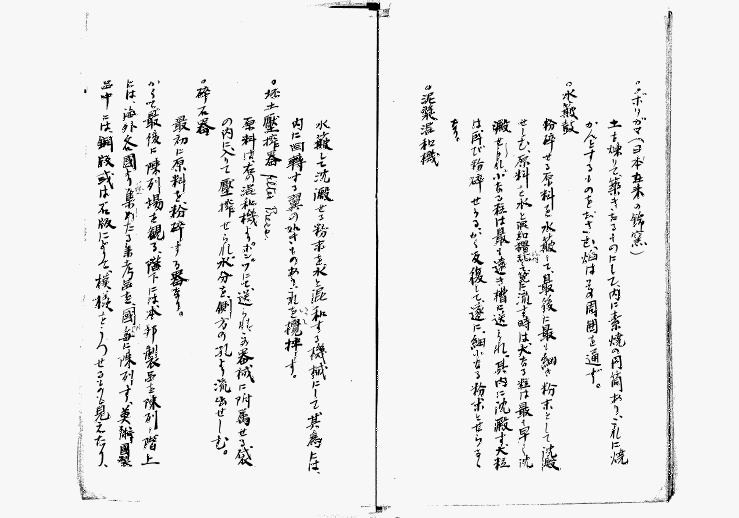 ○ノボリガマ(日本在来の錦窯)
土を煉りて築きたるものにして、内に素焼の円筒あり、これに焼
かんとするものをおさむ、焔は其周囲を通ず。
○水簸鼓
粉砕せる原料を水簸して最後に最も細き粉末として沈澱
せしむ、原料を水と混和機に流す時は大なる粒は最も早く沈
澱せられ小なる粒は最も遠き槽に送られ、其内に沈澱す、大粒
は再び粉砕せらる、かく反復して遂に、細小なる粉末とせらるゝ
なり。
○泥漿混和機
水簸し沈澱せる粉末を水と混和する機械にして其為には、
内に回轉する翼の如きものあり、これを攪拌す。
○坯土壓搾器 Filter Press
原料は右の混和機よりポンプにて送られ、此器械に附属せる袋
の内に入りて壓搾せられ、水分を、側方の孔より流出せしむ。
○砕石器
最初に原料を粉砕する器なり。
かくて最後に陳列場を観る、階下には本邦製品を陳列し階上
には、海外各國より集めたる参考品を、國毎に陳列す、英獨國製
品中には銅版或は石版にて模様をうつせるものも見えたり、